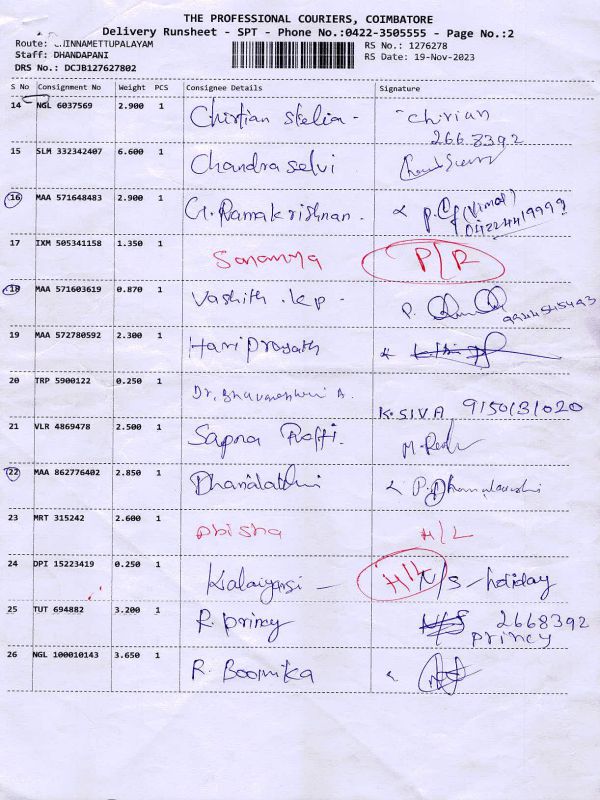 THE PROFESSIONAL COURIERS, COIMBATORE
Delivery Runsheet - SPT - Phone No.:0422-3505555 - Page No.:2
Route: CHINNAMETTUPALAYAM RS No.: 1276278
Staff: DHANDAPANI RS Date: 19-Nov-2023
DRS No.: DCJB127627802
S No Consignment No Weight PCS Consignee Details Signature
14 NGL 6037569 2.900 1 Chirtian Stelia - Chirian
2668392
15 SLM 332342407 6.600 1 Chandra Selvi
16 MAA 571648483 2.900 1 G. Ramakrishnan. (Vimal)
17 IXM 505341158 1.350 1 P/R
18 MAA 571603619 0.870 1 Vashith .k.p - P.
9944545493
19 MAA 572780592 2.300 1 Hariprasath
20 TRP 5900122 0.250 1 Dr. Bhavaneshwri B.
K. SIVA 9150131020
21 VLR 4869478 2.500 1 Sapna
22 MAA 862776402 2.850 1 Dhanalatchmi
23 MRT 315242 2.600 1 H/L
24 DPI 15223419 0.250 1 H/L N/S - holiday
25 TUT 694882 3.200 1 R. princy N/S 2668392
princy
26 NGL 100010143 3.650 1 R. Boomika